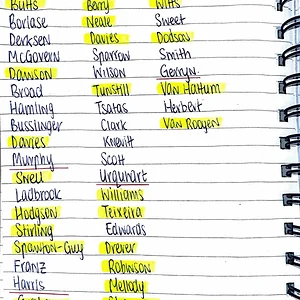 Butts Berry Witts
Borlase Neale Sweet
Derksen Davies Dodson
McGovern Sparrow Smith
Dawson Wilson Gerryn
Broad Tunstill Van Hattum
Hamling Tsatas Herbert
Bussinger Clark Van Rooyen
Davies Knevitt
Murphy Scott
Snell Urquhart
Ladbrook Williams
Hodgson Teixeira
Stirling Edwards
Spawton-Guy Drever
Franz Robinson
Harris Mellody